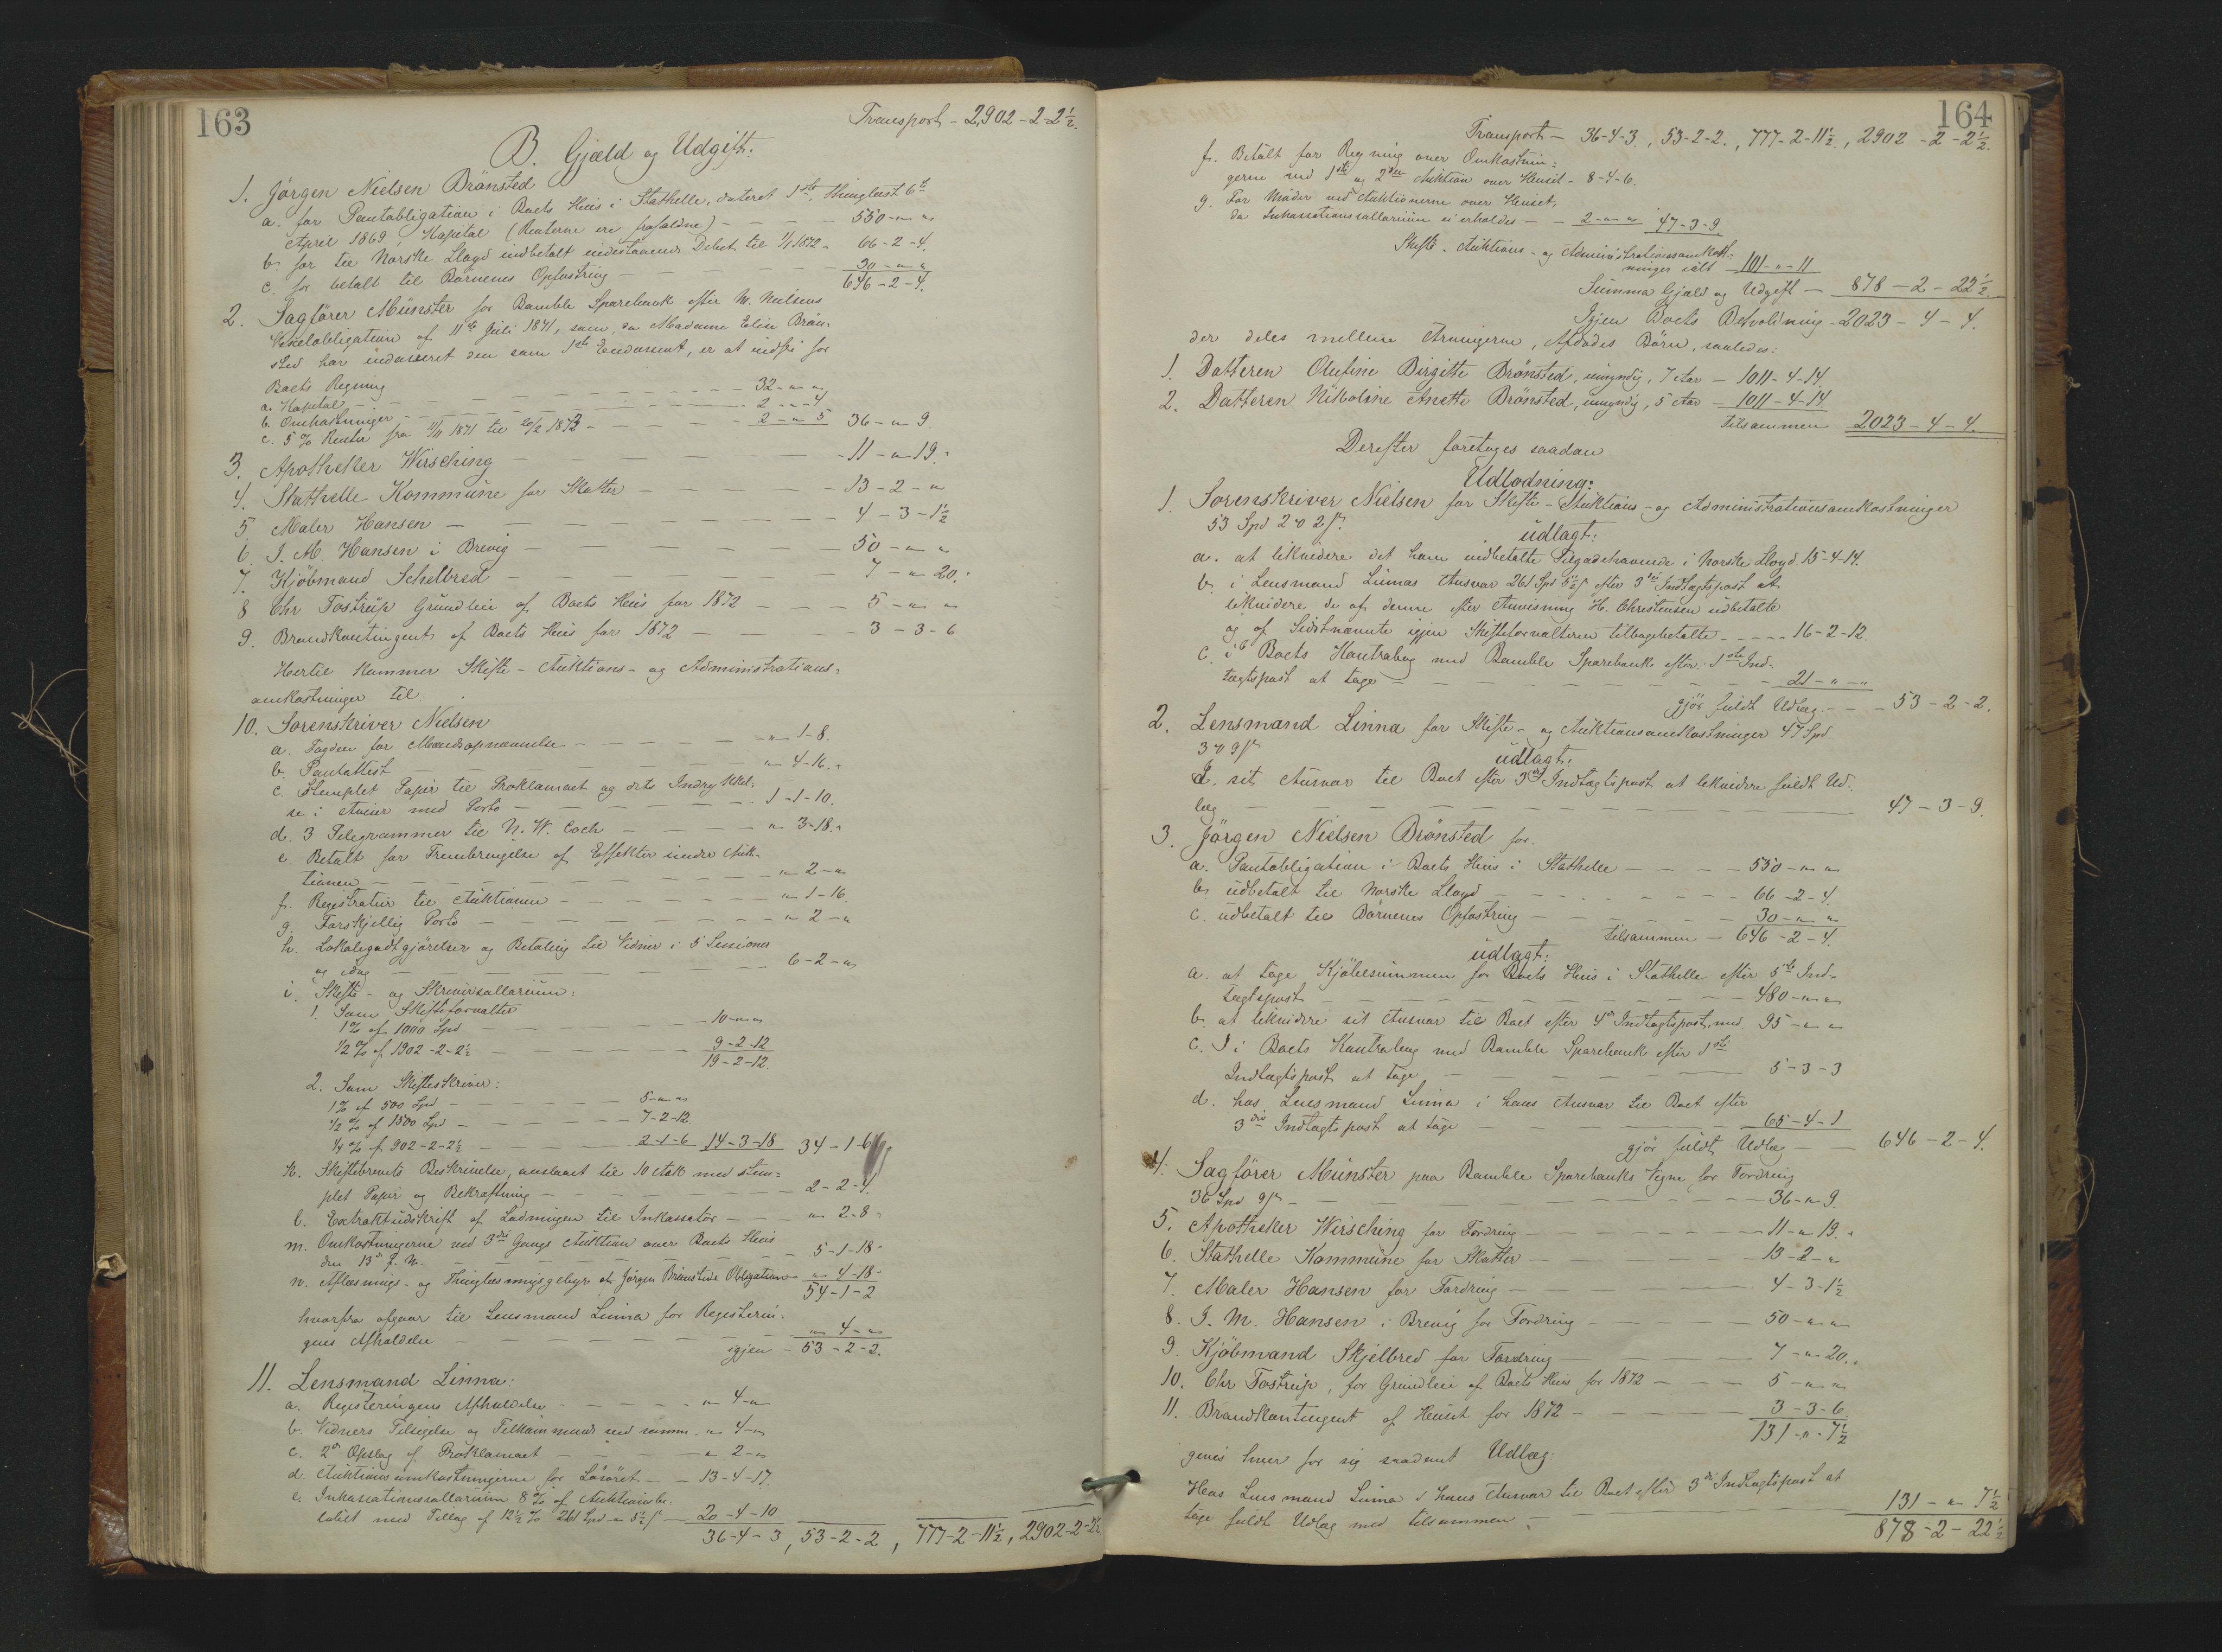 163
Transport - 2,902 - 2 - 2½.
B. Gjæld og Udgift.
1. Jörgen Nielsen Brönsted
a. for Pantobligation i Boets Huus i Stathelle, dateret 1ste, thinglæst 6te
April 1869, Kapital (Renterne ere frafaldne) - 550 - " "
b. for til Norske Lloyd indbetalt indestaaende Debet til 1/1 1872 - 66 - 2 - 4.
c. for betalt til Börnenes Opfostring - 30 - " "
646 - 2 - 4.
2. Sagförer Münster for Bamble Sparebank efter N. Nielsens
Vexelobligation af 11te Juli 1871, som, da Madame Elise Brön-
sted har indosseret den som 1ste Endossent, er at indfri for
Boets Regning
a. Kapital - 32 - " "
b. Omkostninger - 2 - " - 4
c. 5 % Renter fra 11/11 1871 til 20/2 1873 - 2 - " 5 36 - " 9.
3. Apotheker Wirsching - 11 - " 19.
4. Stathelle Kommune for Skatter - 13 - 2 - "
5 Maler Hansen - 4 - 3 - 1½
6. J. M. Hansen i Brevig - 50 - " "
7. Kjöbmand Schelbred - 7 - " 20.
8 Chr Tostrup Grundleie af Boets Huus for 1872 - 5 - " "
9. Brandkontingent af Boets Huus for 1872 - 3 - 3 - 6
Hertil kommer Skifte- Auktions- og Administrations-
omkostninger til
10. Sorenskriver Nielsen
a. Fogden for Mændsopnævnelse - " 1 - 8.
b. Pantattest - " 4 - 16.
c. Stemplet Papir til Proklamaet og dets Indrykkel-
se i Aviser med Porto - 1 - 1 - 10.
d. 3 Telegrammer til N. W. Coch - " 3 - 18.
e. Betalt for Frembringelse af Effekter under Auk-
tionen - " 2 - "
f. Registratur til Auktionen - " 1 - 16.
g. Forskjellig Porto - " 2 - "
h. Lokalegodtgjörelser og Betaling til Vidner i 5 Sessioner
og idag - 6 - 2 - "
i. Skifte- og Skriversallarium:
1. Som Skifteforvalter
1% af 1000 Spd - 10 - " "
1/2 % af 1902 - 2 - 2½ - 9 - 2 - 12
19 - 2 - 12.
2. Som Skifteskriver:
1% af 500 Spd - 5 - " "
1/2 % af 1500 Spd - 7 - 2 - 12
1/4 % af 902 - 2 - 2½ - 2 - 1 - 6 14 - 3 - 18 34 - 1 - 6
k. Skiftebrevets Beskrivelse, anslaaet til 10 Ark med stem-
plet Papir og Bekræftning - 2 - 2 - 4.
l. Extraktudskrift af Lodningen til Inkassator - " 2 - 8
m. Omkostningerne ved 3die Gangs Auktion over Boets Huus
den 13de f. M. - 5 - 1 - 18
n. Aflæsnings- og Thinglæsningsgebyr af Jörgen Brönsteds Obligation - " 4 - 18
54 - 1 - 2
hvorfra afgaar til Lensmand Linna for Registerin-
gens Afholdelse - " 4 - "
igjen - 53 - 2 - 2.
11. Lensmand Linna:
a. Registeringens Afholdelse - " 4 - "
b. Vidners Tilsigelse og Tilkommende ved samme - " 4 - "
c. 2de Opslag af Proklamaet - " 2 - "
d. Auktionsomkostningerne for Lösöret - 13 - 4 - 17.
e. Inkassationssallarium 8 % af Auktionsbe-
löbet med Tillæg af 12½ % 261 Spd " 5½ ß - 20 - 4 - 10
36 - 4 - 3, 53 - 2 - 2, 777 - 2 - 11½, 2902 - 2 - 2½
164
Transport - 36 - 4 - 3., 53 - 2 - 2., 777 - 2 - 11½, 2902 - 2 - 2½.
f. Betalt for Regning over Omkostnin-
gerne ved 1ste og 2den Auktion over Huset - 8 - 4 - 6.
g. For Möder ved Auktionerne over Huset,
da Inkassationssallarium ei erholdes - 2 - " " 47 - 3 - 9
Skifte- Auktions- og Administrationsomkost-
ninger ialt - 101 - " - 11
Summa Gjæld og Udgift - 878 - 2 - 22½
Igjen Boets Beholdning - 2023 - 4 - 4.
der deles mellem Arvingerne, Afdödes Börn, saaledes:
1. Datteren Olufine Birgitte Brönsted, umyndig, 7 Aar - 1011 - 4 - 14.
2. Datteren Nikoline Anette Brönsted, umyndig, 5 Aar - 1011 - 4 - 14.
tilsammen 2023 - 4 - 4.
Derefter foretoges saadan
Udlodning:
1. Sorenskriver Nielsen for Skifte- Auktions- og Administrationsomkostninger
53 Spd 2 ort 2 ß.
udlagt:
a. at likvidere det ham indbetalte Tilgodehavende i Norske Lloyd. 15 - 4 - 14.
b. i Lensmand Linnas Ansvar 261 Spd 5½ ß efter 3die Indtægtspost at
likvidere de af denne efter Anvisning H. Christensen udbetalte
og af Sidstnævnte igjen Skifteforvalteren tilbagebetalte - 16 - 2 - 12.
c. i Boets Kontrabog med Bamble Sparebank efter 1ste Ind-
tægtspost at tage - 21 - " - "
gjör fuldt Udlæg - 53 - 2 - 2.
2. Lensmand Linna for Skifte- og Auktionsomkostninger 47 Spd
3 ort 9 ß
udlagt:
I sit Ansvar til Boet efter 3die Indtægtspost at likvidere fuldt Ud-
læg - 47 - 3 - 9.
3. Jörgen Nielsen Brönsted for
a. Pantobligation i Boets Huus i Stathelle - 550 - " "
b. udbetalt til Norske Lloyd - 66 - 2 - 4.
c. udbetalt til Börnenes Opfostring - 30 - " "
tilsammen - 646 - 2 - 4.
udlagt:
a. at tage Kjöbesummen for Boets Huus i Stathelle efter 5te Ind-
tægtspost - 480 - " "
b. at likvidere sit Ansvar til Boet efter 4de Indtægtspost, med 95 - " "
c. I Boets Kontrabog med Bamble Sparebank efter 1ste
Indtægtspost at tage - 5 - 3 - 3
d. hos Lensmand Linna i hans Ansvar til Boet efter
3die Indtægtspost at tage - 65 - 4 - 1
gjör fuldt Udlæg - 646 - 2 - 4.
4. Sagförer Münster paa Bamble Sparebanks Vegne for Fordring
36 Spd 9 ß - 36 - " 9.
5. Apotheker Wirsching for Fordring - 11 - " 19.
6. Stathelle Kommune for Skatter - 13 - 2 - "
7. Maler Hansen for Fordring - 4 - 3 - 1½
8. J. M. Hansen i Brevig for Fordring - 50 - " "
9. Kjöbmand Skjelbred for Fordring - 7 - " 20.
10. Chr Tostrup, for Grundleie af Boets Huus for 1872 - 5 - " "
11. Brandkontingent af Huset for 1872 - 3 - 3 - 6.
131 - " - 7½
gives hver for sig saadant Udlæg:
Hos Lensmand Linna i hans Ansvar til Boet efter 3die Indtægtspost at
tage fuldt Udlæg med tilsammen - 131 - " 7½
878 - 2 - 22½